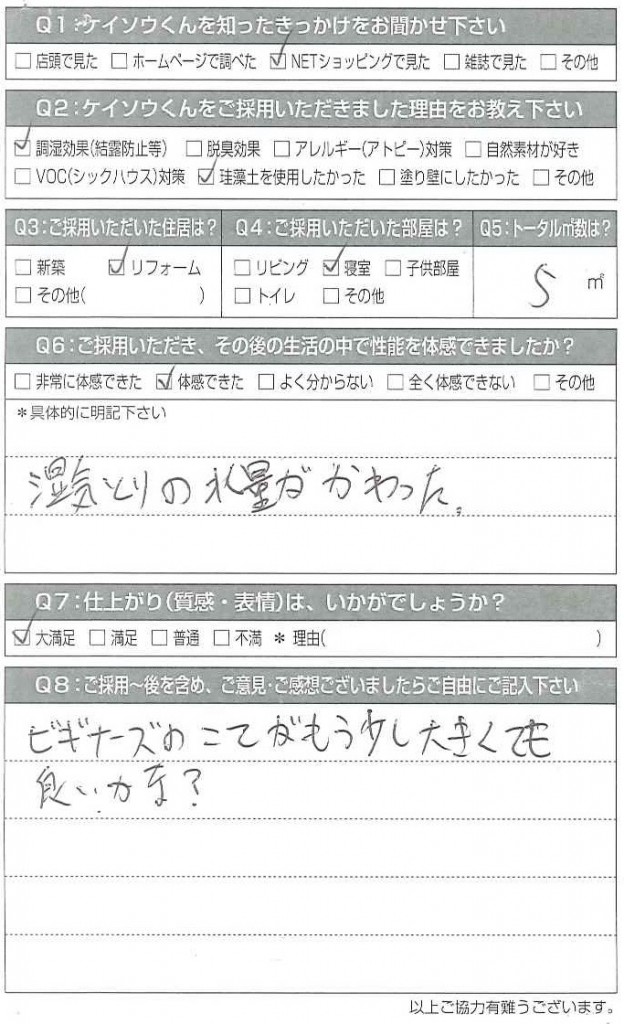 Q1:ケイソウくんを知ったきっかけをお聞かせ下さい
□店頭で見た □ホームページで調べた ☑NETショッピングで見た □雑誌で見た □その他
Q2:ケイソウくんをご採用いただきました理由をお教え下さい
☑調湿効果(結露防止等) □脱臭効果 □アレルギー(アトピー)対策 □自然素材が好き
□VOC(シックハウス)対策 ☑珪藻土を使用したかった □塗り壁にしたかった □その他
Q3:ご採用いただいた住居は? Q4:ご採用いただいた部屋は? Q5:トータル㎡数は?
□新築 ☑リフォーム □リビング ☑寝室 □子供部屋 5 ㎡
□その他( ) □トイレ □その他
Q6:ご採用いただき、その後の生活の中で性能を体感できましたか?
□非常に体感できた ☑体感できた □よく分からない □全く体感できない □その他
*具体的に明記下さい
湿気とりの水量がかわった。
Q7:仕上がり(質感・表情)は、いかがでしょうか?
☑大満足 □満足 □普通 □不満 *理由( )
Q8:ご採用〜後を含め、ご意見・ご感想ございましたらご自由にご記入下さい
ビギナーズのこてがもう少し大きくても
良いかな?
以上ご協力有難うございます。